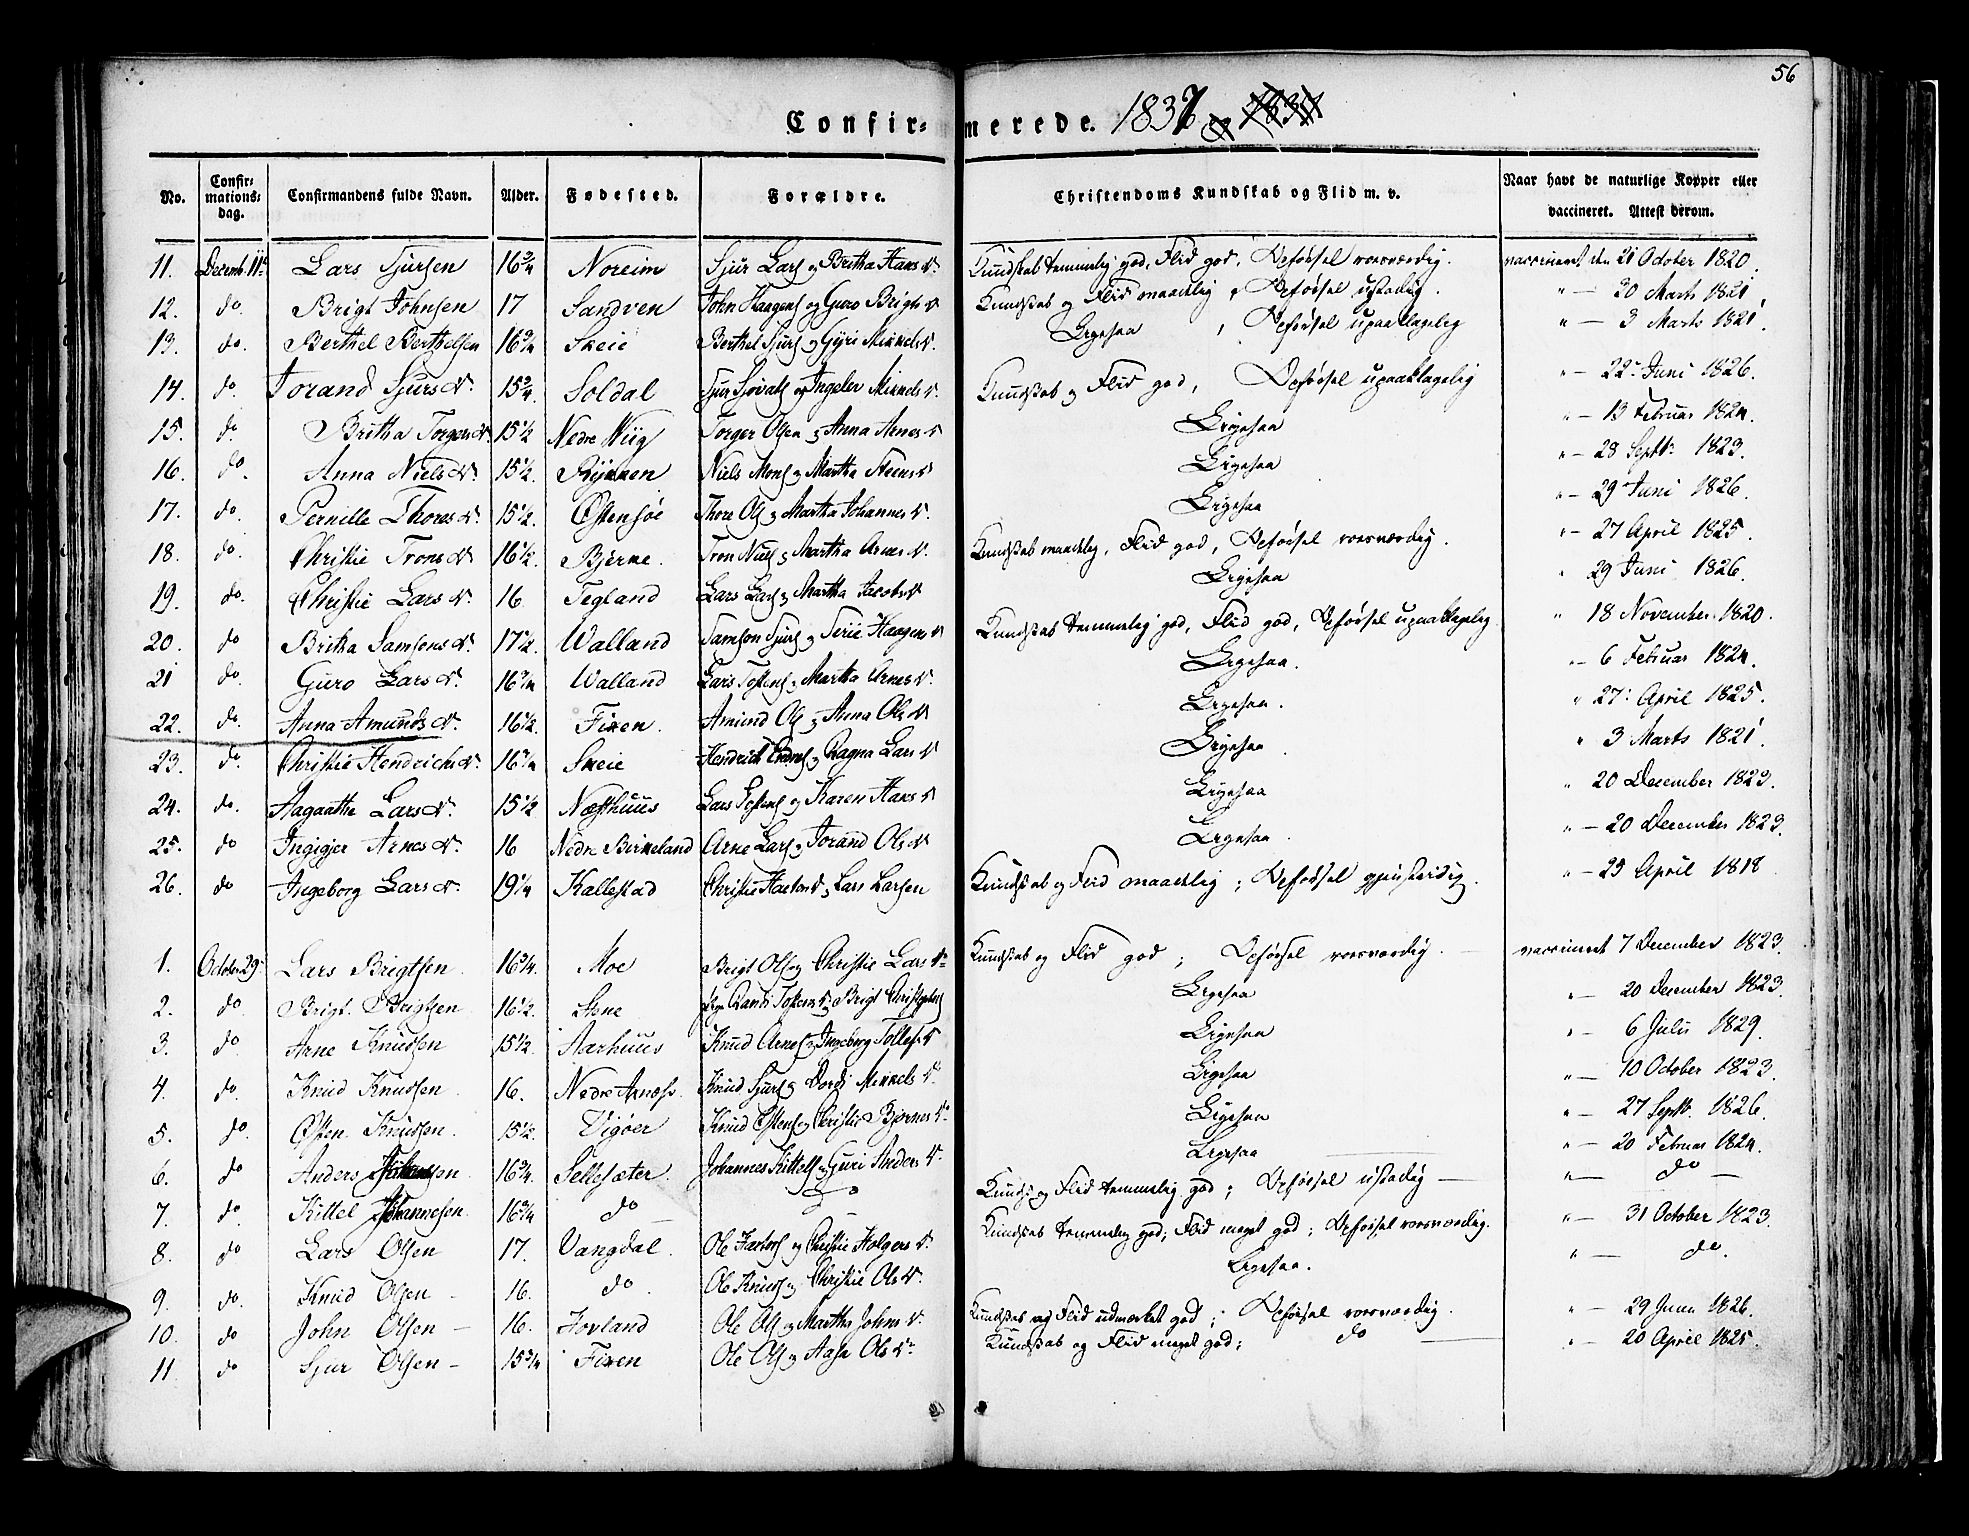 56
Confirmerede. 1837
No. Confirmationsdag. Confirmandens fulde Navn. Alder. Fødested. Forældre. Christendoms Kundskab og Flid m. v. Naar havt de naturlige Kopper eller vaccineret. Attest derom.
11. Decemb. 11te Lars Sjursen 16 3/4 Noreim Sjur Lars. og Britha Hans D. Kundskab temmelig god, Flid god, Opførsel roesværdig. vaccineret den 21 October 1820.
12. do. Brigt Johnsen 17 Sandven John Haagens. og Guro Brigts D. Kundskab og Flid maadelig, Opførsel ustadig. " — 30 Marts 1821.
13. do. Berthel Berthelsen 16 3/4 Skeie Berthel Sjurs. og Gyri Mikkels D. Ligesaa, Opførsel upaaklagelig " — 3 Marts 1821.
14. do Torand Sjurs D. 15 3/4. Soldal Sjur Sjovats. og Ingeler Mikkels D. Kundskab og Flid god, Opførsel upaaklagelig " — 22. Juni 1826.
15. do. Britha Torgers D. 15 1/2 Nedre Wiig Torger Olsen og Anna Arnes D Ligesaa " — 13 Februar 1824.
16. do. Anna Niels D. 15 1/2. Rykken Niels Mons. og Martha Steens D Ligesaa " — 28 Septb. 1823.
17. do. Pernille Thores D. 15 1/2. Østensøe Thore Ols. og Martha Johannes D. Ligesaa " — 29 Juni 1826.
18. do. Christie Trons D. 16 1/2. Bjerke. Tron Niels. og Martha Arnes D. Kundskab maadelig, Flid god, Opførsel roesværdig. " — 27 April 1825.
19. do. Christie Lars D. 16 Tegland Lars Lars. og Martha Jacobs D Ligesaa " 29 Juni 1826.
20. do Britha Samsons D. 17 1/2. Walland Samson Sjurs. og Serie Haagen D Kundskab temmelig god, Flid god, Opførsel upaaklagelig " 18 November 1820.
21 do. Guro Lars D. 16 3/4 Walland Lars Tostens. og Martha Arnes D. Ligesaa. " — 6 Februar 1824.
22. do. Anna Amunds D. 16 1/2. Fixen. Amund Ols. og Anna Ols D Ligesaa. " 27. April 1825.
23. do. Christie Hendrichs D. 16 3/4 Skeie Hendrich og Ragna Lars D Ligesaa " 3 Marts 1821.
24. do. Aagaathe Lars D. 15 1/2 Næsthuus Lars Tostens. og Karen Hans D Ligesaa " 20 December 1823.
25. do Ingigjer Arnes D. 16 Nedre Birkeland Arne Lars. og Torand Ols D Ligesaa. " — 20 December 1823.
26. do Ingeborg Lars D. 19 1/4 Kallestad Christie D. og Lars Larsen Kundskab og Flid maadelig; Opførsel gjenstridig. " — 25 April 1818
1. October 29. Lars Brigtsen. 16 3/4. Moe Brigt Ols. og Christie Lars D. Kundskab og Flid god; Opførsel roesværdig. vaccineret 7 December 1823.
2. do Brigt. Brigtsen. 16 1/2. Stene Randi Tostens D. Brigt Ligesaa " — 20 December 1823.
3. do. Arne Knudsen 15 1/2. Aarhuus Knud Arnes. og Ingeborg Tollefs D Ligesaa " — 6 Julii 1829.
4. do. Knud Knudsen 16. Nedre Arnæs. Knud Sjurs. og Dordi Mikkels D. Ligesaa " — 10 October 1823.
5. do. Østen Knudsen. 15 1/2. Vigøer Knud Østens. og Christie Bjørnes D. Ligesaa " — 27 Septb. 1826.
6. do Anders Johannesen. 16 3/4. Sellesæter Johannes Kittels. og Guri Anders D. Ligesaa " — 20 Februar 1824.
7. do. Kittel Johannesen. 16 3/4 do Kundsk. og Flid temmelig god; Opførsel ustadig — " — do —
8. do Lars Olsen 17. Vangdal. Ole og Christie Holgers D. Kundskab temmelig god; Flid meget god; Opførsel roesværdig. " — 31 October 1823.
9. do. Knud Olsen — 16. do. Ole Knuds. og Christie Ols D. Ligesaa. " — do.
10. do John Olsen — 16. Jovland Ole Ols. og Martha Johns D. Kundskab og Flid udmærket god; Opførsel roesværdig. " — 29 Juni 1826.
11. do Sjur Olsen — 15 3/4 Fixen Ole Ols. og Aasa Ols D. Kundskab og Flid meget god; do — " — 20 April 1825.